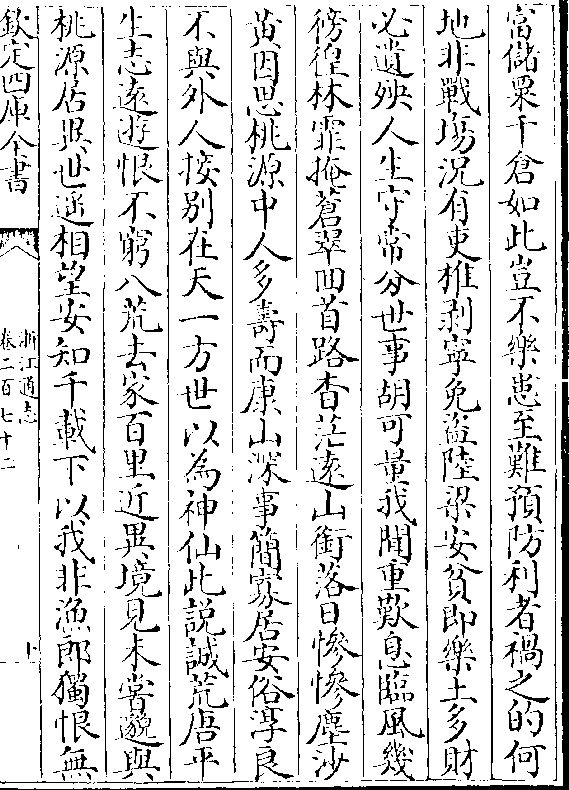 富儲粟千倉如此豈不樂患至難預防利者禍之的何
地非戰場況有吏椎剥寧免盜陸梁安貧即樂土多財
必遺殃人生守常分世事胡可量我聞重歎息臨風幾
徬徨林霏掩蒼翠回首路杳茫遠山銜落日慘慘塵沙
黄因思桃源中人多壽而康山深事簡寡居安俗淳良
不與外人接别在天一方世以為神仙此説誠荒唐平
生志遠遊恨不窮八荒去家百里近異境見未嘗邈與
桃源居異世遥相望安知千載下以我非漁郎獨恨無
欽定四庫全書
浙江通志
卷二百七十二